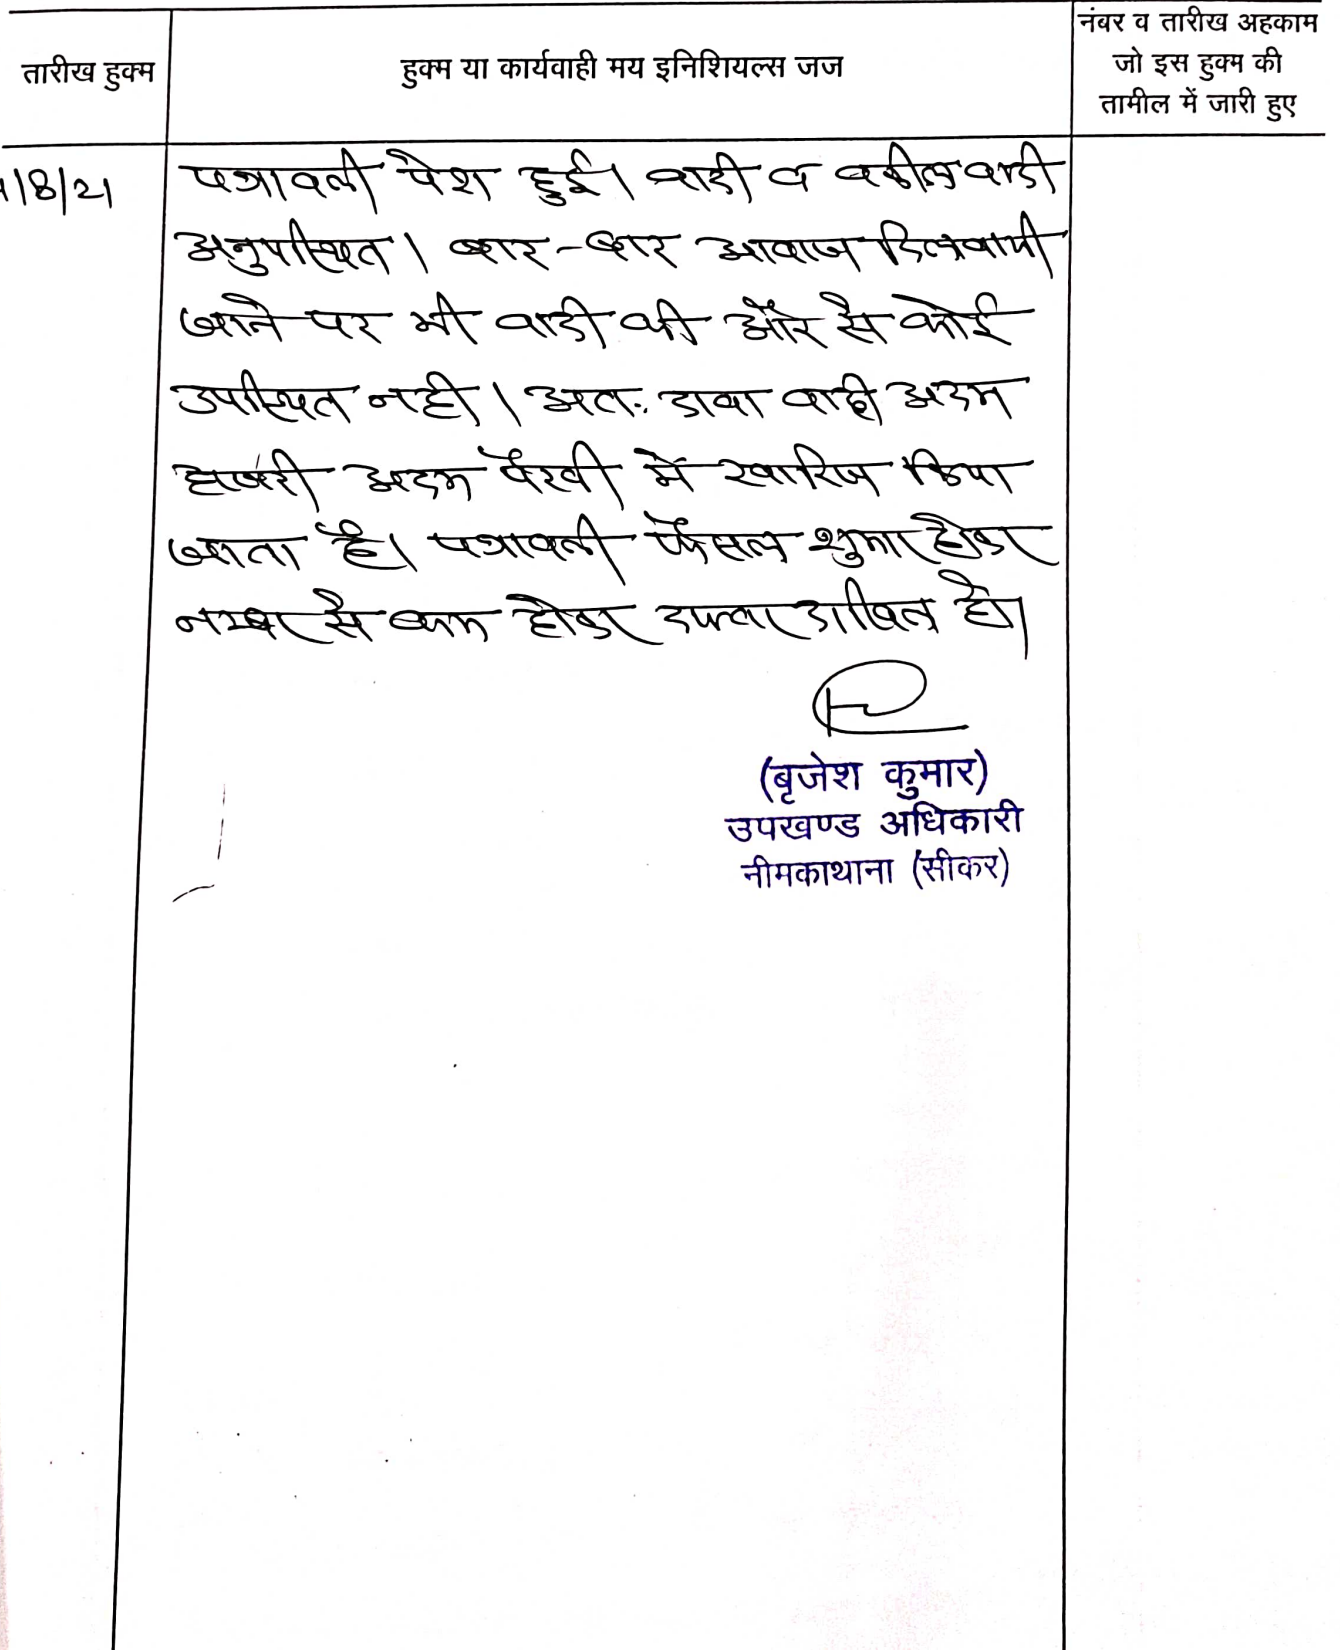 तारीख हुक्म
हुक्म या कार्यवाही मय इनिशियल्स जज
नंबर व तारीख अहकाम
जो इस हुक्म की
तामील में जारी हुए
/8/21
पत्रावली पेश हुई। वादी व वकील वादी
अनुपस्थित। बार-बार आवाज दिलवायी
जाने पर भी वादी की ओर से कोई
उपस्थित नही। अतः दावा वादी अदम
हाजरी अदम पैरवी में खारिज किया
जाता है। पत्रावली फैसल शुमार होकर
नम्बर से कम होकर दफ्तर दाखिल हो।
(बृजेश कुमार)
उपखण्ड अधिकारी
नीमकाथाना (सीकर)